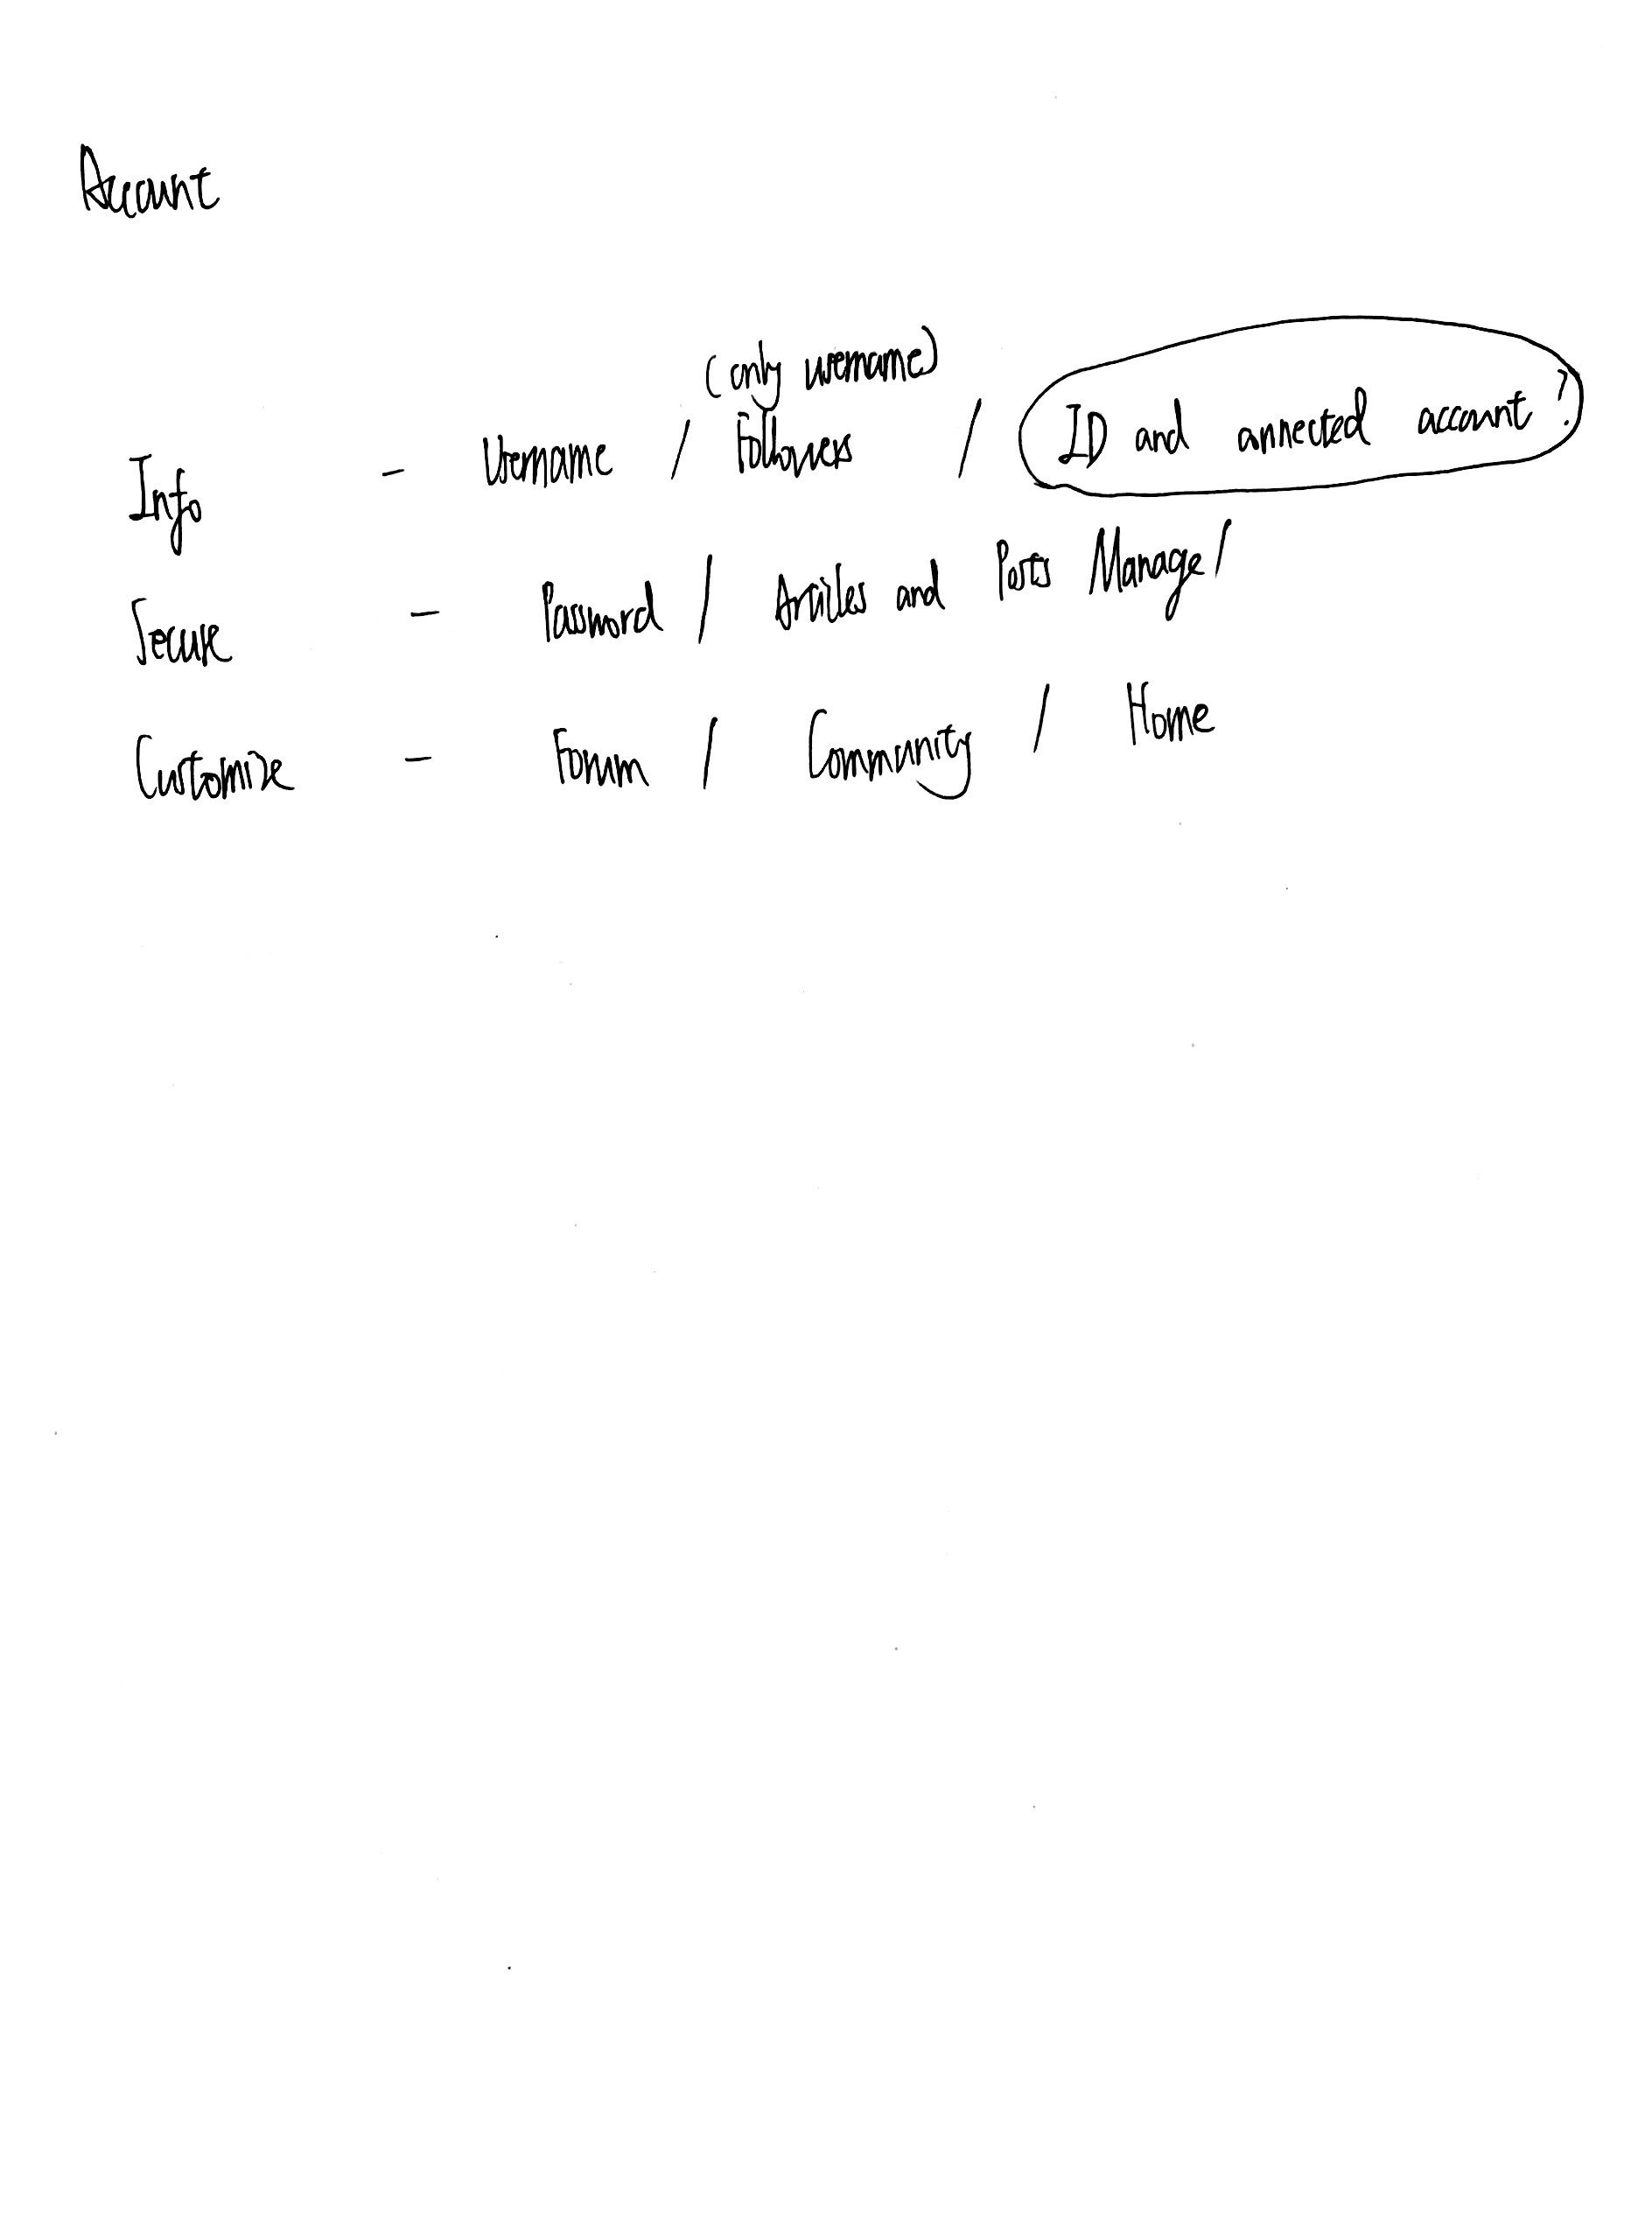 Account
(only username)
Info - Username / Followers / ID and connected account?
Secure - Password / Articles and Posts Manage/
Customize - Forum / Community / Home